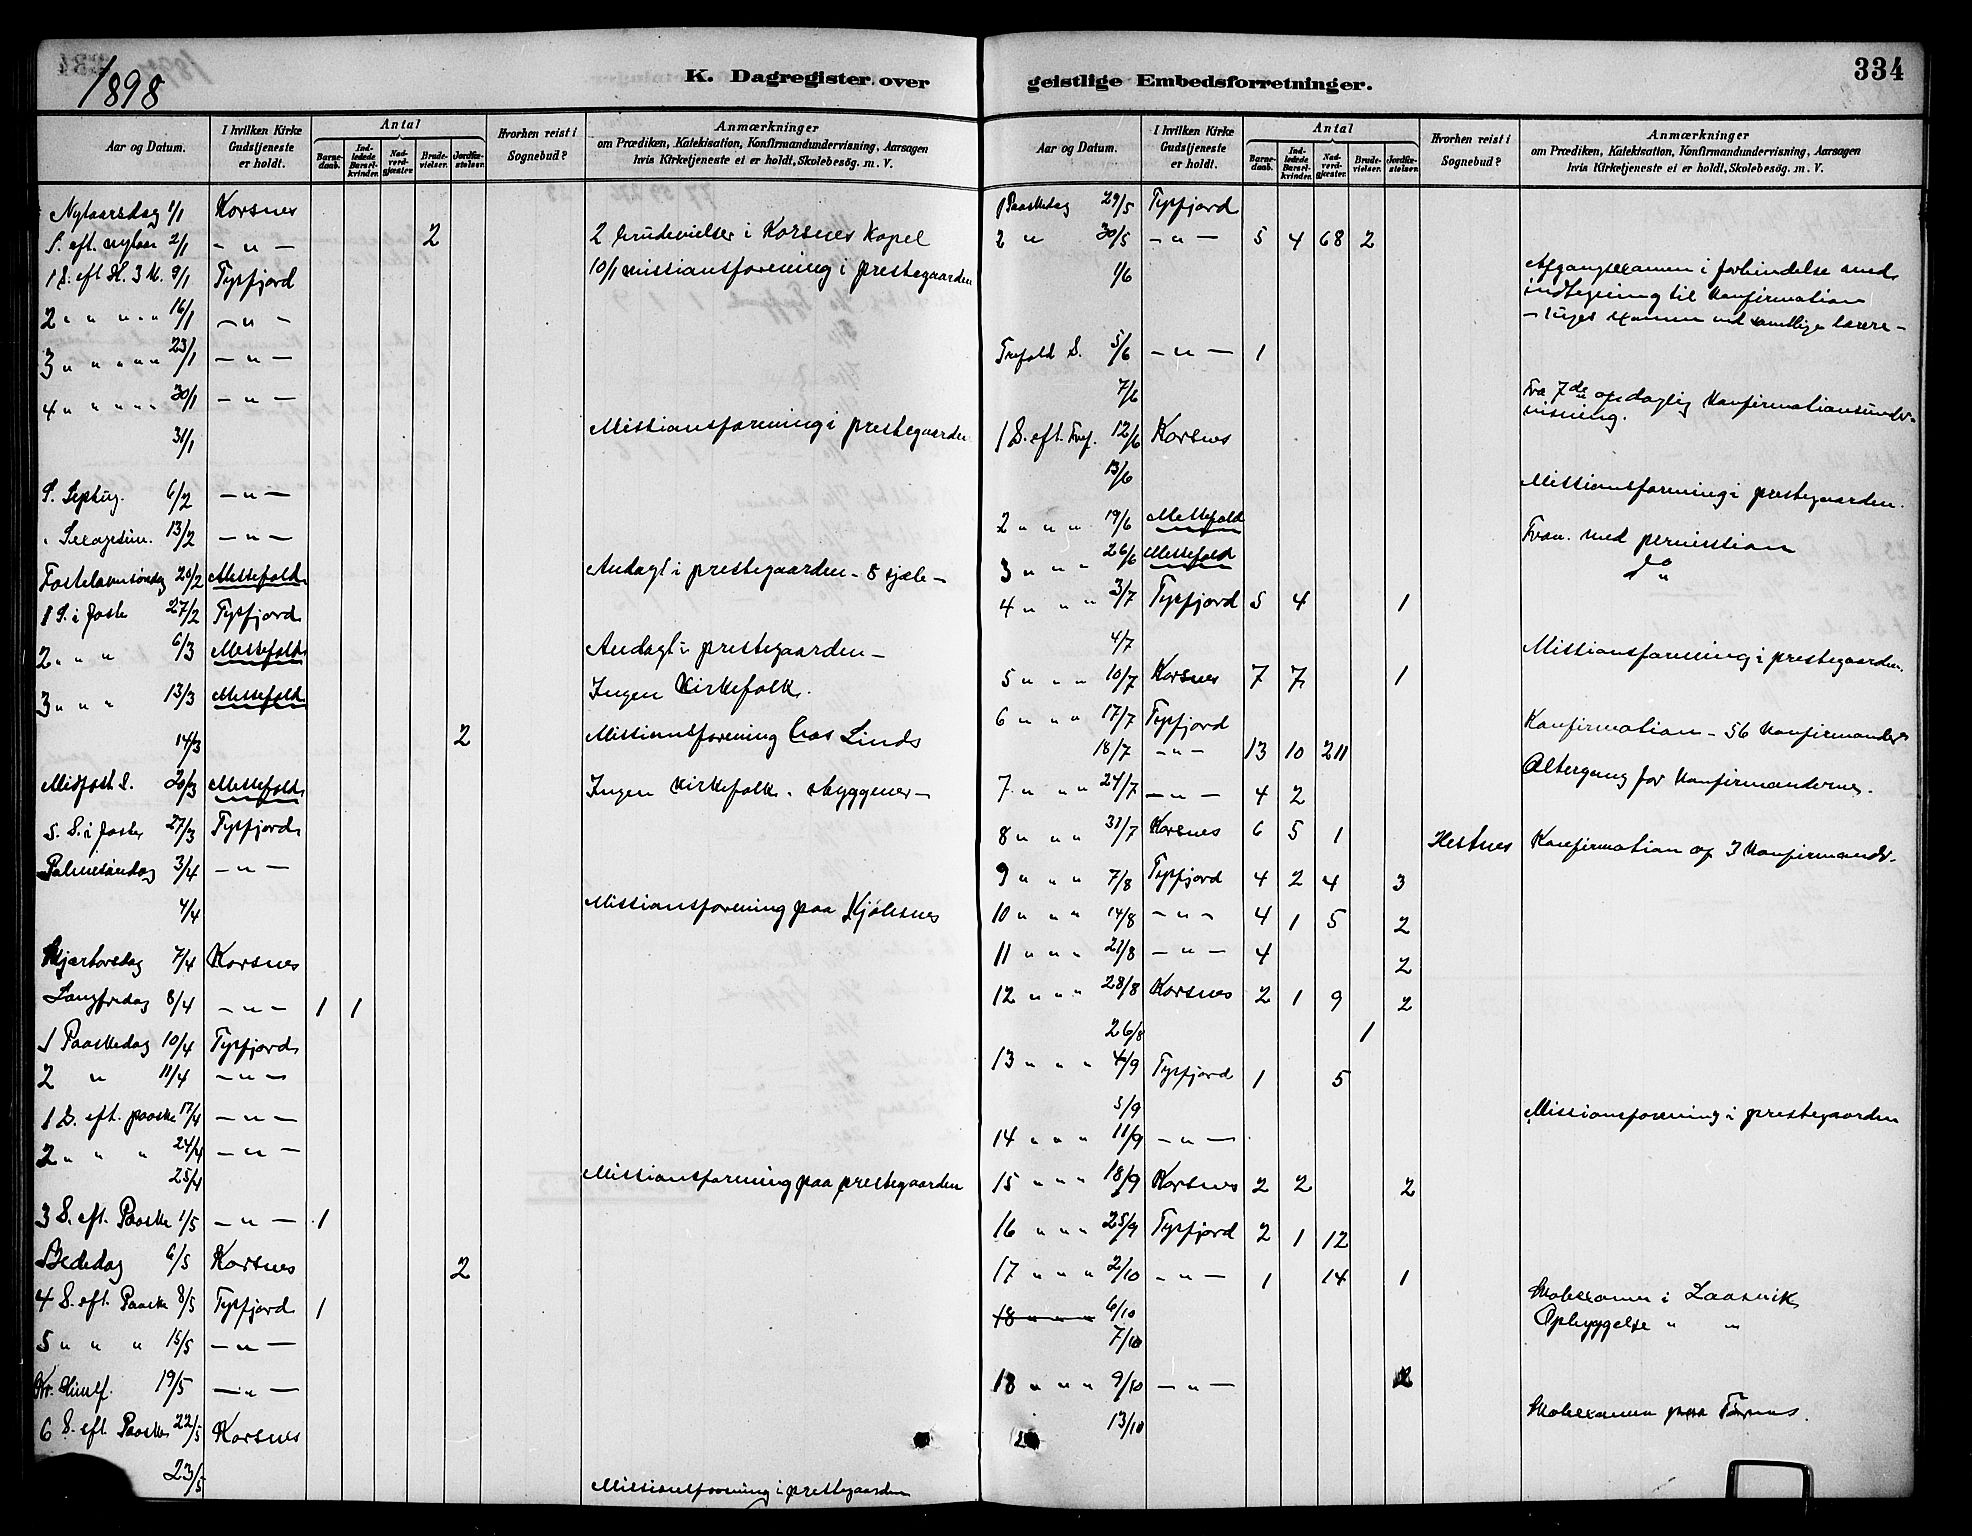 1898
K. Dagregister over
Aar og Datum.
I hvilken Kirke Gudstjeneste er holdt.
Antal
Barnedaab.
Indledede Barselkvinder.
Nadverdgjæster.
Brudevielser.
Jordfæstelser.
Hvorhen reist i Sognebud?
Anmærkninger
om Prædiken, Katekisation, Konfirmandundervisning, Aarsagen
hvis Kirketjeneste ei er holdt, Skolebesög. m. V.
Nytaarsdag 1/1 Korsnes
S. eft. nytaar 2/1 - " - 2 2 brudevielser i Korsnes Kapel
1 S. eft. H. 3 K. 9/1 Tysfjord 10/1 Missionsforening i prestegaarden
2 " " " " 16/1 - " -
3 " " " " 23/1 - " -
4 " " " " 30/1 - " -
31/1 Missionsforening i prestegaarden
S. Septug. 6/2 - " -
" Sexagesim. 13/2 - " -
Fastelavnssøndag 20/2 Messefald Andagt i prestegaarden - 8 sjæle -
1 S. i faste 27/2 Tysfjord
2 " " " 6/3 Messefald Andagt i prestegaarden -
3 " " " 13/3 Messefald Ingen Kirkefolk.
14/3 2 Missionsforening hos Linds
Midfast S. 20/3 Messefald Ingen Kirkefolk.
5. S. i faste 27/3 Tysfjord
Palmesøndag 3/4 - " -
4/4 Missionsforening paa Kjølsnes
Skjærtorsdag 7/4 Korsnes
Langfredag 8/4 - " - 1 1
1 Paaskedag 10/4 Tysfjord
2 " 11/4 - " -
1 S. eft. paaske 17/4 - " -
2 " " " 24/4 - " -
25/4 Missionsforening paa prestegaarden
3 S. eft. Paaske 1/5 - " - 1
Bededag 6/5 Korsnes 2
4 S. eft. Paaske 8/5 Tysfjord 1
5 " " " 15/5 - " -
Kr. Himlf. 19/5 - " -
6 S. eft. Paaske 22/5 Korsnes
23/5 Missionsforening i prestegaarden
geistlige Embedsforretninger.
334
Aar og Datum.
I hvilken Kirke Gudstjeneste er holdt.
Antal
Barnedaab.
Indledede Barselkvinder.
Nadverdgjæster.
Brudevielser.
Jordfæstelser.
Hvorhen reist i Sognebud?
Anmærkninger
om Prædiken, Katekisation, Konfirmandundervisning, Aarsagen
hvis Kirketjeneste ei er holdt, Skolebesög. m. V.
1 Paaskedag 29/5 Tysfjord
2 " 30/5 - " - 5 4 68 2
1/6 Afgangsexamen i forbindelse med
indtegning til Konfirmation
- examen ved samtlige lærere -
Trefold S. 5/6 - " - 1
7/6 Fra 7de af daglig Konfirmationsunder-
visning.
1 S. eft. Tref. 12/6 Korsnes
13/6 Missionsforening i prestegaarden.
2 " " " 19/6 Messefald Frav. med permission
3 " " " 26/6 Messefald do "
4 " " " 3/7 Tysfjord 5 4 1
4/7 Missionsforening i prestegaarden.
5 " " " 10/7 Korsnes 7 7 1
6 " " " 17/7 Tysfjord Konfirmation - 56 Konfirmander
18/7 - " - 13 10 211 Altergang for Konfirmanderne.
7 " " " 24/7 - " - 4 2
8 " " " 31/7 Korsnes 6 5 1 Hestnes Konfirmation af 3 Konfirmander.
9 " " " 7/8 Tysfjord 4 2 4 3
10 " " " 14/8 - " - 4 1 5 2
11 " " " 21/8 - " - 4 2
12 " " " 28/8 Korsnes 2 1 9 2
26/8 1
13 " " " 4/9 Tysfjord 1 5
5/9 Missionsforening i prestegaarden
14 " " " 11/9 - " -
15 " " " 18/9 Korsnes 2 2 2
16 " " " 25/9 Tysfjord 2 1 12
17 " " " 2/10 - " - 1 14 1
18 " " " 6/10 Skolexamen i Laasvik
7/10 Opbyggelse " "
18 " " " 9/10 - " - 2
13/10 Skolexamen paa Tørnes.